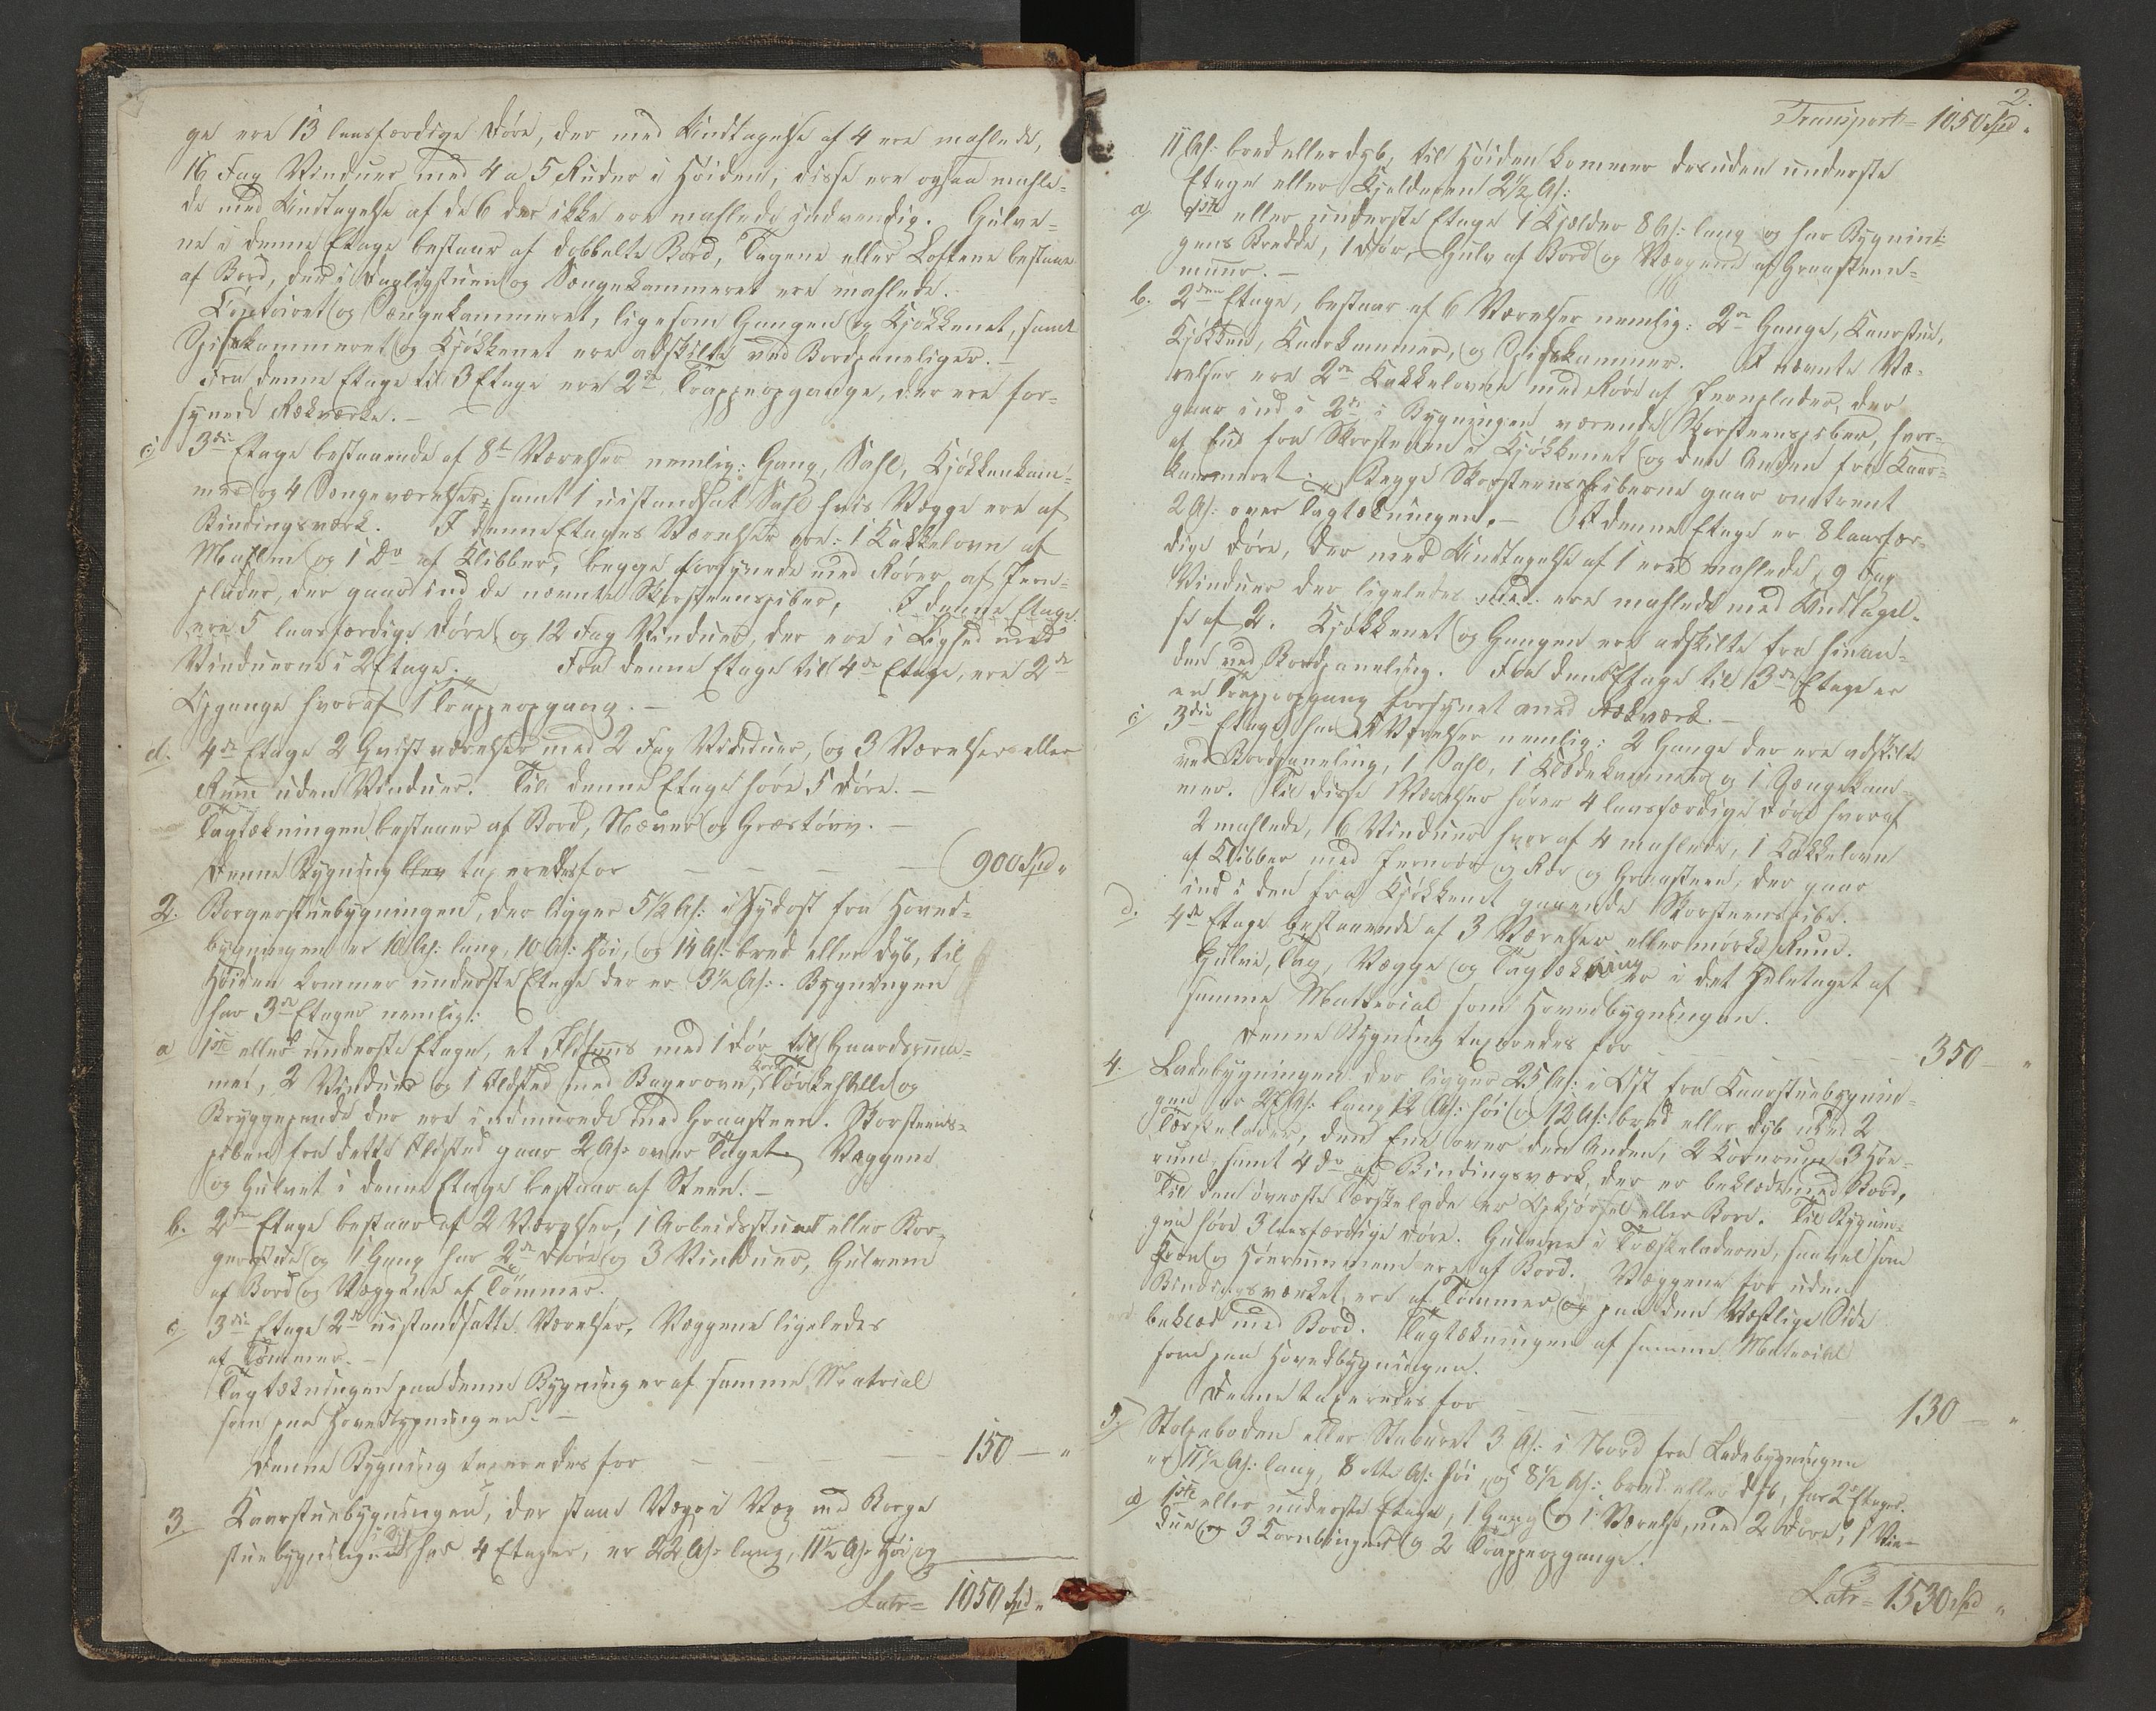 ge ere 13 laasfærdige Døre, der med Undtagelse af 4 ere mahlede,
16 Fag Vinduer med 4 a 5 Ruder i Høiden, disse ere ogsaa mahle-
de med Undtagelse af de 6 der ikke ere mahlede indvendig. Gulve-
ne i denne Etage bestaar af dobbelte Bord, Tagene eller Loftene bestaar
af Bord, den i Dagligstuen og Sengekammeret ere mahlede.
Contoiret og Sengekammeret, ligesom Gangen og Kjøkkenet, samt
Spisekammeret og Kjøkkenet ere adskilte ved Bordpaneliger. -
Fra denne Etage til 3 Etage ere 2de Trappeopgange, der ere for-
synede Rækværke. -
c. 3die Etage bestaaende af 8te Værelser nemlig: Gang, Sahl, Kjøkkenkam-
mer og 4 Sengeværelser, samt 1 uistandsat Sahl hvis Vægge ere af
Bindingsværk. I denne Etages Værelser ere: 1 Kakkelovn af
Mahlm og 1 Do af Klibber, begge forsynede med Rører af Jern-
plader, der gaar ind de nævnte Skorsteenspiber, I denne Etage
ere 5 laasfærdige Døre og 12 Fag Vinduer, der ere i Lighed med
Vinduerne i 2 Etage. Fra denne Etage til 4de Etage, ere 2de
Opgange hvoraf 1 Trappeopgang. -
d. 4de Etage 2 Qvistværelser med 2 Fag Vinduer, og 3 Værelser eller
Rum uden Vinduer. Til denne Etage høre 5 Døre. -
Tagtækningen bestaaer af Bord, Næver og Græstørv. -
Denne Bygning blev taxeredes for - - - - 900 Spd "
2. Borgerstuebygningen, der ligger 5½ Al: i Sydost fra Hoved-
bygningen er 18 Al: lang, 10 Al: høi, og 14 Al: bred eller dyb, til
Høiden kommer underste Etage der er 3½ Al:. Bygningen
har 3de Etager nemlig:
a 1ste eller underste Etage, et Ildhuus med 1 Dør til Gaardsrum-
met, 2 Vinduer og 1 Ildsted med Bagerovn, Korn Tørkehelle og
Bryggepande der ere indmurede med Graasteen. Skorsteens-
piben fra dette Ildsted gaar 2 Al: over Taget. Væggene
og Gulvet i denne Etage bestaar af Steen. -
b. 2den Etage bestaar af 2 Værelser, 1 Arbeidsstue eller Bor-
gerstue og 1 Gang har 2de Døre og 3 Vinduer, Gulvene
af Bord og Væggene af Tømmer.
c. 3die Etage 2de uistandsatte Værelser, Væggene ligeledes
af Tømmer. -
Tagtækningen paa denne Bygning er af samme Matrial
som paa Hovedbygningen. -
Denne Bygning taxeredes for - - - - 150 - "
3 Kaarstuebygningen, der staar Væg i Væg med Borge
stuebygningen har 4 Etager, er 22 Al: lang, 11½ Al: høi og
Latr= 1050 Spd "
2.
Transport= 1050 Spd "
11 Al: bred eller dyb, til Høiden kommer desuden underste
Etage eller Kjelderen 2½ Al:
a) 1ste eller underste Etage 1 Kjælder 8 Al: lang og har Bygnin-
gens Bredde, 1 Dør, Gulv af Bord og Væggene af Graasteen-
muur. -
b. 2den Etage, bestaar af 6 Værelser nemlig: 2de Gange, Kaarstue,
Kjøkken, Kaarkammer, og Spisekammer. I nævnte Væ-
relser ere 2de Kakkelovne med Rør af Jernplader, der
gaar ind i 2de i Bygningen værende Skorsteenspiber, hvor-
af Een fra Skorstenen i Kjøkkenet og den Anden fra Kaar-
kammeret. Begge Skorsteenspiberne gaar omtrent
2 Al: over Tagtækningen. - I denne Etage er 8 laasfær-
dige Døre, der med Undtagelse af 1 ere mahlede, 9 Fag
Vinduer der ligeledes ere mahlede med Undtagel-
se af 2. Kjøkkenet og Gangen ere adskilte fra hinan-
den ved Bordpaneling. Fra den Etage til 3die Etage er
en Trappeopgang forsynet med Rækværk. -
c) 3die Etage har 5 Værelser nemlig: 2 Gange der ere adskilte
ved Bordpaneling, 1 Sahl, 1 Klædekammer og 1 Sengekam-
mer. Til disse Værelser hører 4 laasfærdige Døre hvoraf
2 mahlede, 6 Vinduer hvoraf 4 mahlede, 1 Kakkelovn
af Klibber med Jernrør og Rør og Graasteen, der gaar
ind i den fra Kjøkkenet gaaende Skorsteenspibe.
d. 4de Etage bestaaende af 3 Værelser eller mørke Rum.
Gulve, Tag, Vægge og Tagtækning er i det Heletaget af
samme Matterial som Hovedbygningen.
Denne Bygning taxeredes for - - - - 350 - "
4. Ladebygningen der ligger 25 Al: i Ost fra Kaarstuebygnin-
gen er 28 Al: lang 12 Al: høi og 12 Al: bred eller dyb med 2
Tærskelader, den Ene over den Anden, 2 Kornrum 3 Høe-
rum samt 4 Do af Bindingsværk, der er beklæde med Bord.
Til den øverste Tærskelade er Opkjørsel eller Broe. Til Bygnin-
gen høre 3 laasfærdige Døre. Gulvene i Træskeladerne, saavel som
Korn og Høerummene ere af Bord. Væggene for uden
Bindingsværket ere af Tømmer og paa den Vestlige Side
beklæd med Bord. Tagtækningen af samme Material
som paa Hovedbygningen.
Denne taxeredes for - - - 130 - "
5.) Stolpeboden eller Staburet 3 Al: i Nord fra Ladebygningen
er 11½ Al: lang, 8 otte Al: høi, og 8½ Al: bred eller dyb, har 2 Etager.
a) 1ste eller underste Etage, 1 Gang og 1 Værelse, med 2 Døre, 1 Vin-
due og 3 Kornbinger og 2 Trappeopgange.
Latr= 1530 Spd "